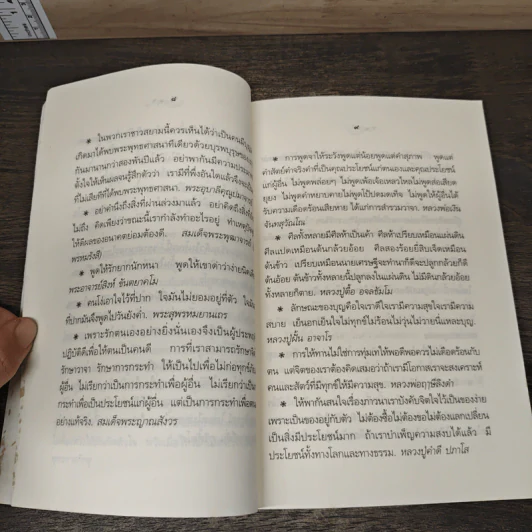 ๘
* ในพวกเราชาวสยามนี้ควรเห็นได้ว่าเป็นคนมี
เกิดมาได้พบพระพุทธศาสนาที่เดียวด้วยบุรพบุรุษของ
กันมานานกว่าสองพันปีแล้ว อย่าพากันมีความประมาท
ตั้งใจให้เห็นผลจนรู้สึกตัวว่า เรามีที่พึ่งอันใดแล้วจึงจะเป็น
ที่ไม่เสียทีที่ได้พบพระพุทธศาสนา. พระอุบาลีคุณูปมาจารย์
* อย่าคำนึงถึงสิ่งที่ผ่านล่วงมาแล้ว อย่าคิดถึงสิ่งที่
ไม่ถึง คิดเพียงว่าขณะนี้เรากำลังทำอะไรอยู่ ทำเหตุ
ให้ดีผลของอนาคตย่อมต้องดี. สมเด็จพระพุฒาจารย์
พรหมรังสี)
* พูดให้รักยากนักหนา พูดให้เขาด่าว่าง่ายนิดเดียว
พระอาจารย์สิงห์ ขันตยาคโม
* คนโง่เอาใจไว้ที่ปาก ใจมันไม่ยอมอยู่ที่ตัว ใจมัน
ที่ปากมันจึงพูดไปวันยังค่ำ. พระสุพรหมยานเถร
* เพราะรักตนเองอย่างยิ่งนั่นเองจึงเป็นผู้ประพฤติ
ปฏิบัติดีเพื่อให้ตนเป็นคนดี การที่เราสามารถรักษาใจ
รักษาวาจา รักษาการกระทำ ให้เป็นไปเพื่อไม่ก่อทุกข์ภัย
ผู้อื่น ไม่เรียกว่าเป็นการกระทำเพื่อผู้อื่น ไม่เรียกว่าเป็นการ
กระทำเพื่อเป็นประโยชน์แก่ผู้อื่น แต่เป็นการกระทำเพื่อตน
อย่างแท้จริง. สมเด็จพระญาณสังวร
๙
* การพูดจาให้ระวังพูดแต่น้อยพูดแต่คำสุภาพ พูดแต่
คำสัตย์คำจริงคำที่เป็นคุณประโยชน์แก่ตนเองและคุณประโยชน์
แก่ผู้อื่น ไม่พูดพล่อยๆ ไม่พูดเพ้อเจ้อเหลวไหลไม่พูดส่อเสียด
ยุยง ไม่พูดคำหยาบคายไม่พูดโป้ปดมดเท็จ ไม่พูดให้ผู้อื่นได้
รับความเดือดร้อนเสียหาย ได้แก่การสำรวมวาจา. หลวงพ่อเงิน
จันทสุวัณโณ
* ศีลทั้งหลายมีศีลห้าเป็นเค้า ศีลห้าเปรียบเหมือนแผ่นดิน
ศีลแปดเหมือนต้นกล้วยอ้อย ศีลสองร้อยยี่สิบเจ็ดเหมือน
ต้นข้าว เปรียบเหมือนนายเศรษฐีจะทำนาก็ดีจะปลูกกล้วยก็ดีต้น
อ้อยก็ดี ต้นข้าวทั้งหลายนี้ปลูกลงในแผ่นดิน ไม่มีดินกล้วยอ้อย
ทั้งหลายก็ตาย. หลวงปู่ตื้อ อจลธัมโม
* ลักษณะของบุญคือใจเราดีใจเรามีความสุขใจเรามีความ
สบาย เยือกเย็นใจไม่ทุกข์ไม่ร้อนไม่วุ่นไม่วายนี่แหละบุญ.
หลวงปู่ฝั้น อาจาโร
* การให้ทานไม่ใช่การทุ่มเทให้พอดีพอควรไม่เดือดร้อนกับ
ตน แต่จิตของเราต้องคิดเสมอว่าถ้าเรามีโอกาสเราจะสงเคราะห์
คนและสัตว์ที่มีทุกข์ให้มีความสุข. หลวงพ่อฤาษีลิงดำ
* ให้พากันสนใจเรื่องภาวนาเราบังคับจิตใจไว้เป็นของง่าย
เพราะเป็นของอยู่กับตัว ไม่ต้องซื้อไม่ต้องขอไม่ต้องแลกเปลี่ยน
เป็นสิ่งมีประโยชน์มาก ถ้าเราบำเพ็ญความสงบได้แล้ว มี
ประโยชน์ทั้งทางโลกและทางธรรม. หลวงปู่คำดี ปภาโส